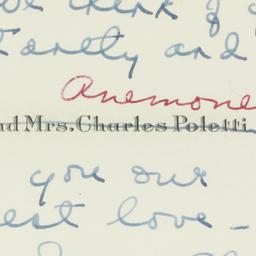 think of
and
Anemone
nd Mrs. Charles Poletti
you our
est love -